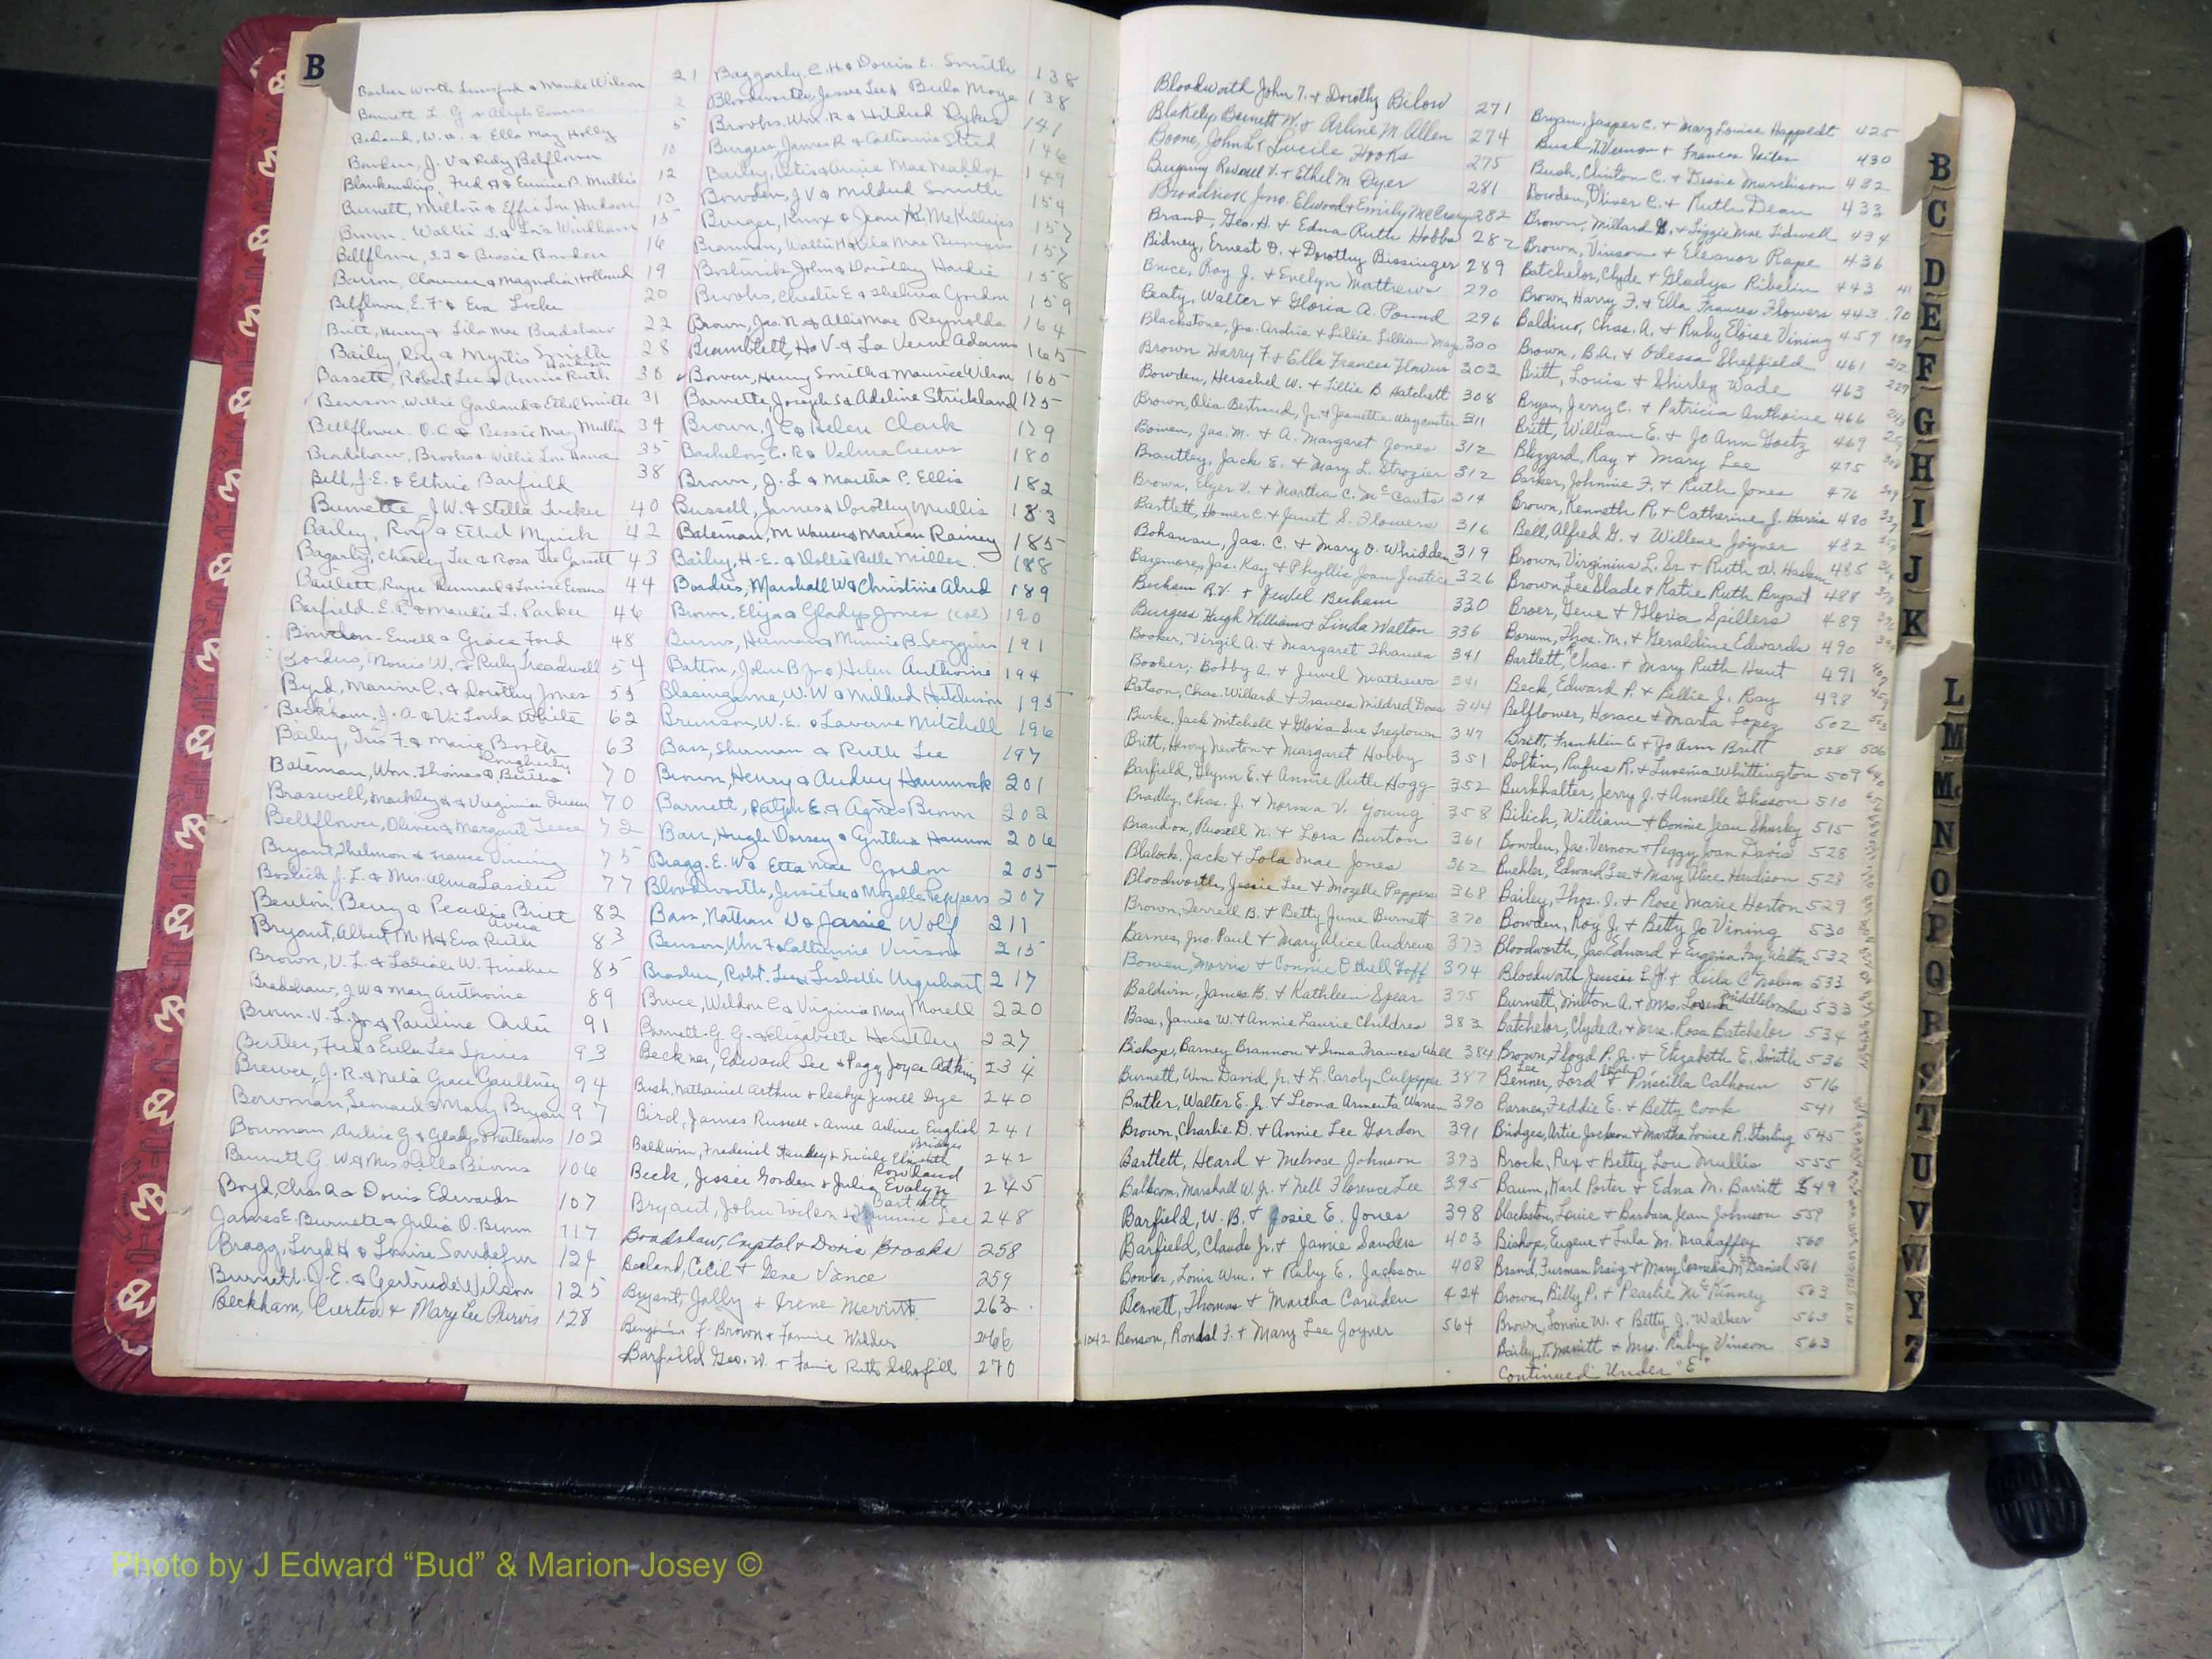 B
Barker Worth Lunsford & Maude Wilson 21
Bennett L. G
Beland, W. A. & Ella May Holly 5
Barker, J. V & Ruby Belflower 10
Blankenship, Fred & Eunice B. Mullis 12
Burnett, Milton & Effie Lou Hudson 13
Brown, Wallie & Lois Windham 15
Bellflower, & Bessie Bowden 16
Barron, Clarence & Magnolia Holland 19
Belflower, E. F. & Eva 20
Britt, Henry & Lila Mae Bradshaw 22
Bailey, Roy & Myrtis Smith 28
Bassett, Robert Lee & Annie Ruth Harkison 30
Benson, Willie Garland & Ethel Smith 31
Bellflower. O. C. & Bessie May Mullis 34
Bradshaw, Brooks & Willie Lou 35
Bell, J. E. & Ethrie Barfield 38
Burnette, J. W. & Stella Tucker 40
Bailey, Roy & Ethel Myrick 42
Bagarly, Charley Lee & Rosa Lee Garrett 43
Bartlett, & Louise Evans 44
Barfield. E. P. & Maudie L. Parker 46
Bowden. Ewell & Grace Ford 48
Borders, Morris W. & Ruby Treadwell 54
Byrd, Marion C. & Dorothy Jones 59
Beckham, J. A. & Vi Loula White 62
Bailey, & Marie Booth 63
Bateman, Wm. Thomas & Bertha Dougherty 70
Braswell, Mackley & Virginia Queen 70
Bellflower, Oliver & Margaret 72
Bryant, Shelmon & France Vining 75
Bostick J. L. & Mrs. Alma Lasiter 77
Benton, Berry & Pearlie Britt 82
Bryant, Albert M. H & Eva Ruth Avera 83
Brown, V. L. & W. Fincher 85
Bradshaw, J. W & Mary Anthoine 89
Brown. V. L. Jr & Pauline Carter 91
Butler, Fred & Eula Lee Spires 93
Brewer, J. R. & Neta Grace Gaultney 94
Bowman, Leonard & Mary Bryan 97
Bowman, Archie G & Gladys Mathews 102
Burnett G. W & Mrs. Della Bivins 106
Boyd, Chas A & Doris Edwards 107
James E. Burnett & Julia O. Brown 117
Bragg, Loyd H & Louise Sandefur 124
Burnett. J. E. & Gertrude Wilson 125
Beckham, Curtis & Mary Lee Purvis 128
Baggarly, C. H. & Doris E. Smith 138
Bloodworth, Jessie Lee & Bula Moye 138
Brooks, Wm. R & Hildred Dykes 141
Burgess, James R & Catherine Stud 146
Bailey, Otis & Annie Mae Maddox 149
Bowden, J V & Mildred Smith 154
Burger, Knox & Jean McKillips 157
Brannan, Wallie H & Lila Mae 157
John & Dorothy Hardie 158
Brooks, Chester E & Thelma Gordon 159
Brown, Jas. N. & Allie Mae Reynolds 164
Bramblett, Ho V. & La Verne Adams 165
Bowen, Henry Smith & Maurice Wilson 165
Barnette, Joseph S & Adeline Strickland 175
Brown, J C & Helen Clark 179
Bachelor, C. R & Velma Crews 180
Brown, J. L & Martha P. Ellis 182
Bussell, James & Dorothy Mullis 183
Bateman, M Warren & Marian Rainey 185
Bailey, H. E. & Dollie Belle Miller. 188
Borders, Marshall W & Christine Alred 189
Brown, Elija & Gladys Jones (col) 190
Burns, Herman & Minnie B. Scoggins 191
Batton, John B Jr & Helen Anthoine 194
Blasingame, W. W & Mildred Hutchison 195
Brunson, W. E. & Laverne Mitchell 196
Bass, Sherman & Ruth Lee 197
Brown, Henry & Audrey Hammock 201
Barnett, Ralph E & Agnes Brown 202
Barr, Hugh Dorsey & Cynthia Hamm 206
Bragg. E. W & Etta Mae Gordon 205
Bloodworth, Jessie Lee & Mozelle Peppers 207
Bass, Nathan D & Janie Wolf 211
Benson, Wm F & Catherine Vinson 215
Brasher, Robt. Lee & Lisbeth Urquhart 217
Bruce, Weldon C & Virginia May Morell 220
Burnett. G. G. & Elizabeth Huntley 227
Beckner, Edward Lee & Peggy Joyce Adkins 234
Bush, Nathaniel Arthur & Jewell Dye 240
Bird, James Russell & Annie Arline English 241
Baldwin, Frederick Stanley & Lucile Elizabeth Bridges 242
Beck, Jessie Gordon & Julia Evelyn Rowland 245
Bryant, John Wilson & Minnie Lee Bartlett 248
Bradshaw, Crystal & Doris Brooks 258
Beeland, Cecil & Gene Vance 259
Bryant, Jolly & Irene Merritt 263
Benjamin F. Brown & Fannie Wilder 266
Barfield Geo. W. & Fanie Ruth Schofill 270
Bloodworth John T. & Dorothy Bilow 271
Blakely, Burnett W. & Arline M. Allen 274
Boone, John L & Lucile Hooks 275
Burgamy Roosevel V. & Ethel M. Dyer 281
Broadrick Jno. Elwood & Emily McCrary 282
Brand, Geo. H. & Edna Ruth Hobbs 282
Bidney, Ernest O. & Dorothy Bissinger 289
Bruce, Roy J. & Evelyn Mathews 290
Beaty, Walter & Gloria A. Pound 296
Blackstone, Jas. Archie & Lillie Lillian Mays 300
Brown Harry F. & Ella Frances Flowers 202
Bowden, Herschel W. & Lillie B Hatchett 308
Brown, Olia Bertrand, Jr. & Jeanette Waycaster 311
Bowen, Jas. M. & A. Margaret Jones 312
Brantley, Jack E. & Mary L. Strozier 312
Brown, Elzer V. & Martha C. McCants 314
Bartlett, Homer C. & Janet S. Flowers 316
Bohanan, Jas. C. & Mary O. Whidden 319
Bazemore, Jas. Kay & Phyllis Joan Justice 326
Becham R.V. & Jewel Becham 330
Burgess Hugh William & Linda Walton 336
Booker, Virgil A. & Margaret Thames 341
Booker, Bobby A. & Jewel Mathews 341
Batson, Chas. Willard & Frances Mildred Doss 344
Burke, Jack Mitchell & Gloria Sue Treglown 347
Britt, Henry Newton & Margaret Hobby 351
Barfield, Glynn E. & Annie Ruth Hogg 352
Bradley, Chas. J. & Norma V. Young 358
Brandon, Russell N. & Lora Burton 361
Blalock, Jack & Lola Mae Jones 362
Bloodworth, Jessie Lee & Mozelle Peppers 368
Brown, Terrell B. & Betty June Burnett 370
Barnes, Jno. Paul & Mary Alice Andrews 373
Bowen, Morris & Connie Othell Goff 374
Baldwin, James B. & Kathleen Spear 375
Bass, James W. & Annie Laurie Childres 383
Bishop, Barney Brannon & Irma Frances Wall 384
Burnett, Wm David, Jr. & L. Carolyn Culpepper 387
Butler, Walter E. Jr. & Leona Armenta Warren 390
Brown, Charlie D. & Annie Lee Gordon 391
Bartlett, Heard & Melrose Johnson 393
Balkcom, Marshall W. Jr. & Nell Florence Lee 395
Barfield, W. B. & Josie E. Jones 398
Barfield, Claude Jr. & Jamie Sanders 403
Bowler, Louis Wm. & Ruby E. Jackson 408
Bennett, Thomas & Martha Camden 424
1042 Benson, Rondal F. & Mary Lee Joyner 564
Bryan, Jasper C. & Mary Louise Happoldt 425
Bush, Vernon & Frances Kites 430
Bush, Clinton C. & Dessie Murchison 432
Bowden, Oliver C. & Ruth Dean 433
Brown, Millard G. & Lizzie Mae Tidwell 434
Brown, Vinson & Eleanor Rape 436
Batchelor, Clyde & Gladys Ribelin 443
Brown, Harry F. & Ella Frances Flowers 443
Baldino, Chas. A. & Ruby Eloise Vining 459
Brown, B.A. & Odessa Sheffield 461
Britt, Louis & Shirley Wade 463
Bryan, Jerry C. & Patricia Anthoine 466
Britt, William E. & Jo Ann Goetz 469
Blizzard, Ray & Mary Lee 475
Barker, Johnnie F. & Ruth Jones 476
Brown, Kenneth R. & Catherine J. Harris 480
Bell, Alfred G. & Willene Joyner 482
Brown, Virginius L. Sr. & Ruth W. Haslam 485
Brown, Lee Slade & Katie Ruth Bryant 488
Broer, Gene & Gloria Spillers 489
Borum, Thos. M. & Geraldine Edwards 490
Bartlett, Chas. & Mary Ruth Hunt 491
Beck, Edward P. & Billie J. Ray 498
Belflower, Horace & Marta Lopez 502
Britt, Franklin E & Jo Ann Britt 528
Boltin, Rufus R. & Luvenia Whittington 509
Burkhalter, Jerry J. & Annelle Glisson 510
Bilich, William & Bonnie Jean Sharley 515
Bowden, Jas. Vernon & Peggy Joan Davis 528
Buehler, Edward Lee & Mary Alice Herdison 528
Bailey, Thos. J. & Rose Marie Horton 529
Bowden, Roy J. & Betty Jo Vining 530
Bloodworth, Jas. Edward & Eugenia Fay Walton 532
Bloodworth Jessie L. Jr. & Leila C Nelson 533
Burnett, Milton A. & Mrs. Middlebrooks 533
Batchelor, Clyde A. & Mrs. Rosa Batchelor 534
Brown, Floyd P. Jr. & Elizabeth E. Smith 536
Benner, Lord Lee & Priscilla Calhoun 516
Barnes, Feddie E. & Betty Cook 541
Bridges, Artie Jackson & Martha Louise R. Starling 545
Brock, Rex & Betty Lou Mullis 555
Baum, Karl Porter & Edna M. Barritt 549
Blackston, Louie & Barbara Jean Johnson 559
Bishop, Eugene & Lula M. Mahaffey 560
Brand, Furman Craig & Mary Cornelia McDaniel 561
Brown, Billy P. & Pearlie McKinney 563
Brown, Lonnie W. & Betty J. Walker 563
Bailey, T. Merritt & Mrs. Ruby Vinson 563
Continued Under "E"
B
C
D
E
F
G
H
I
J
K
L
M
Mc
N
O
P
Q
R
S
T
U
V
W
Y
Z
Photo by J Edward “Bud” & Marion Josey ©